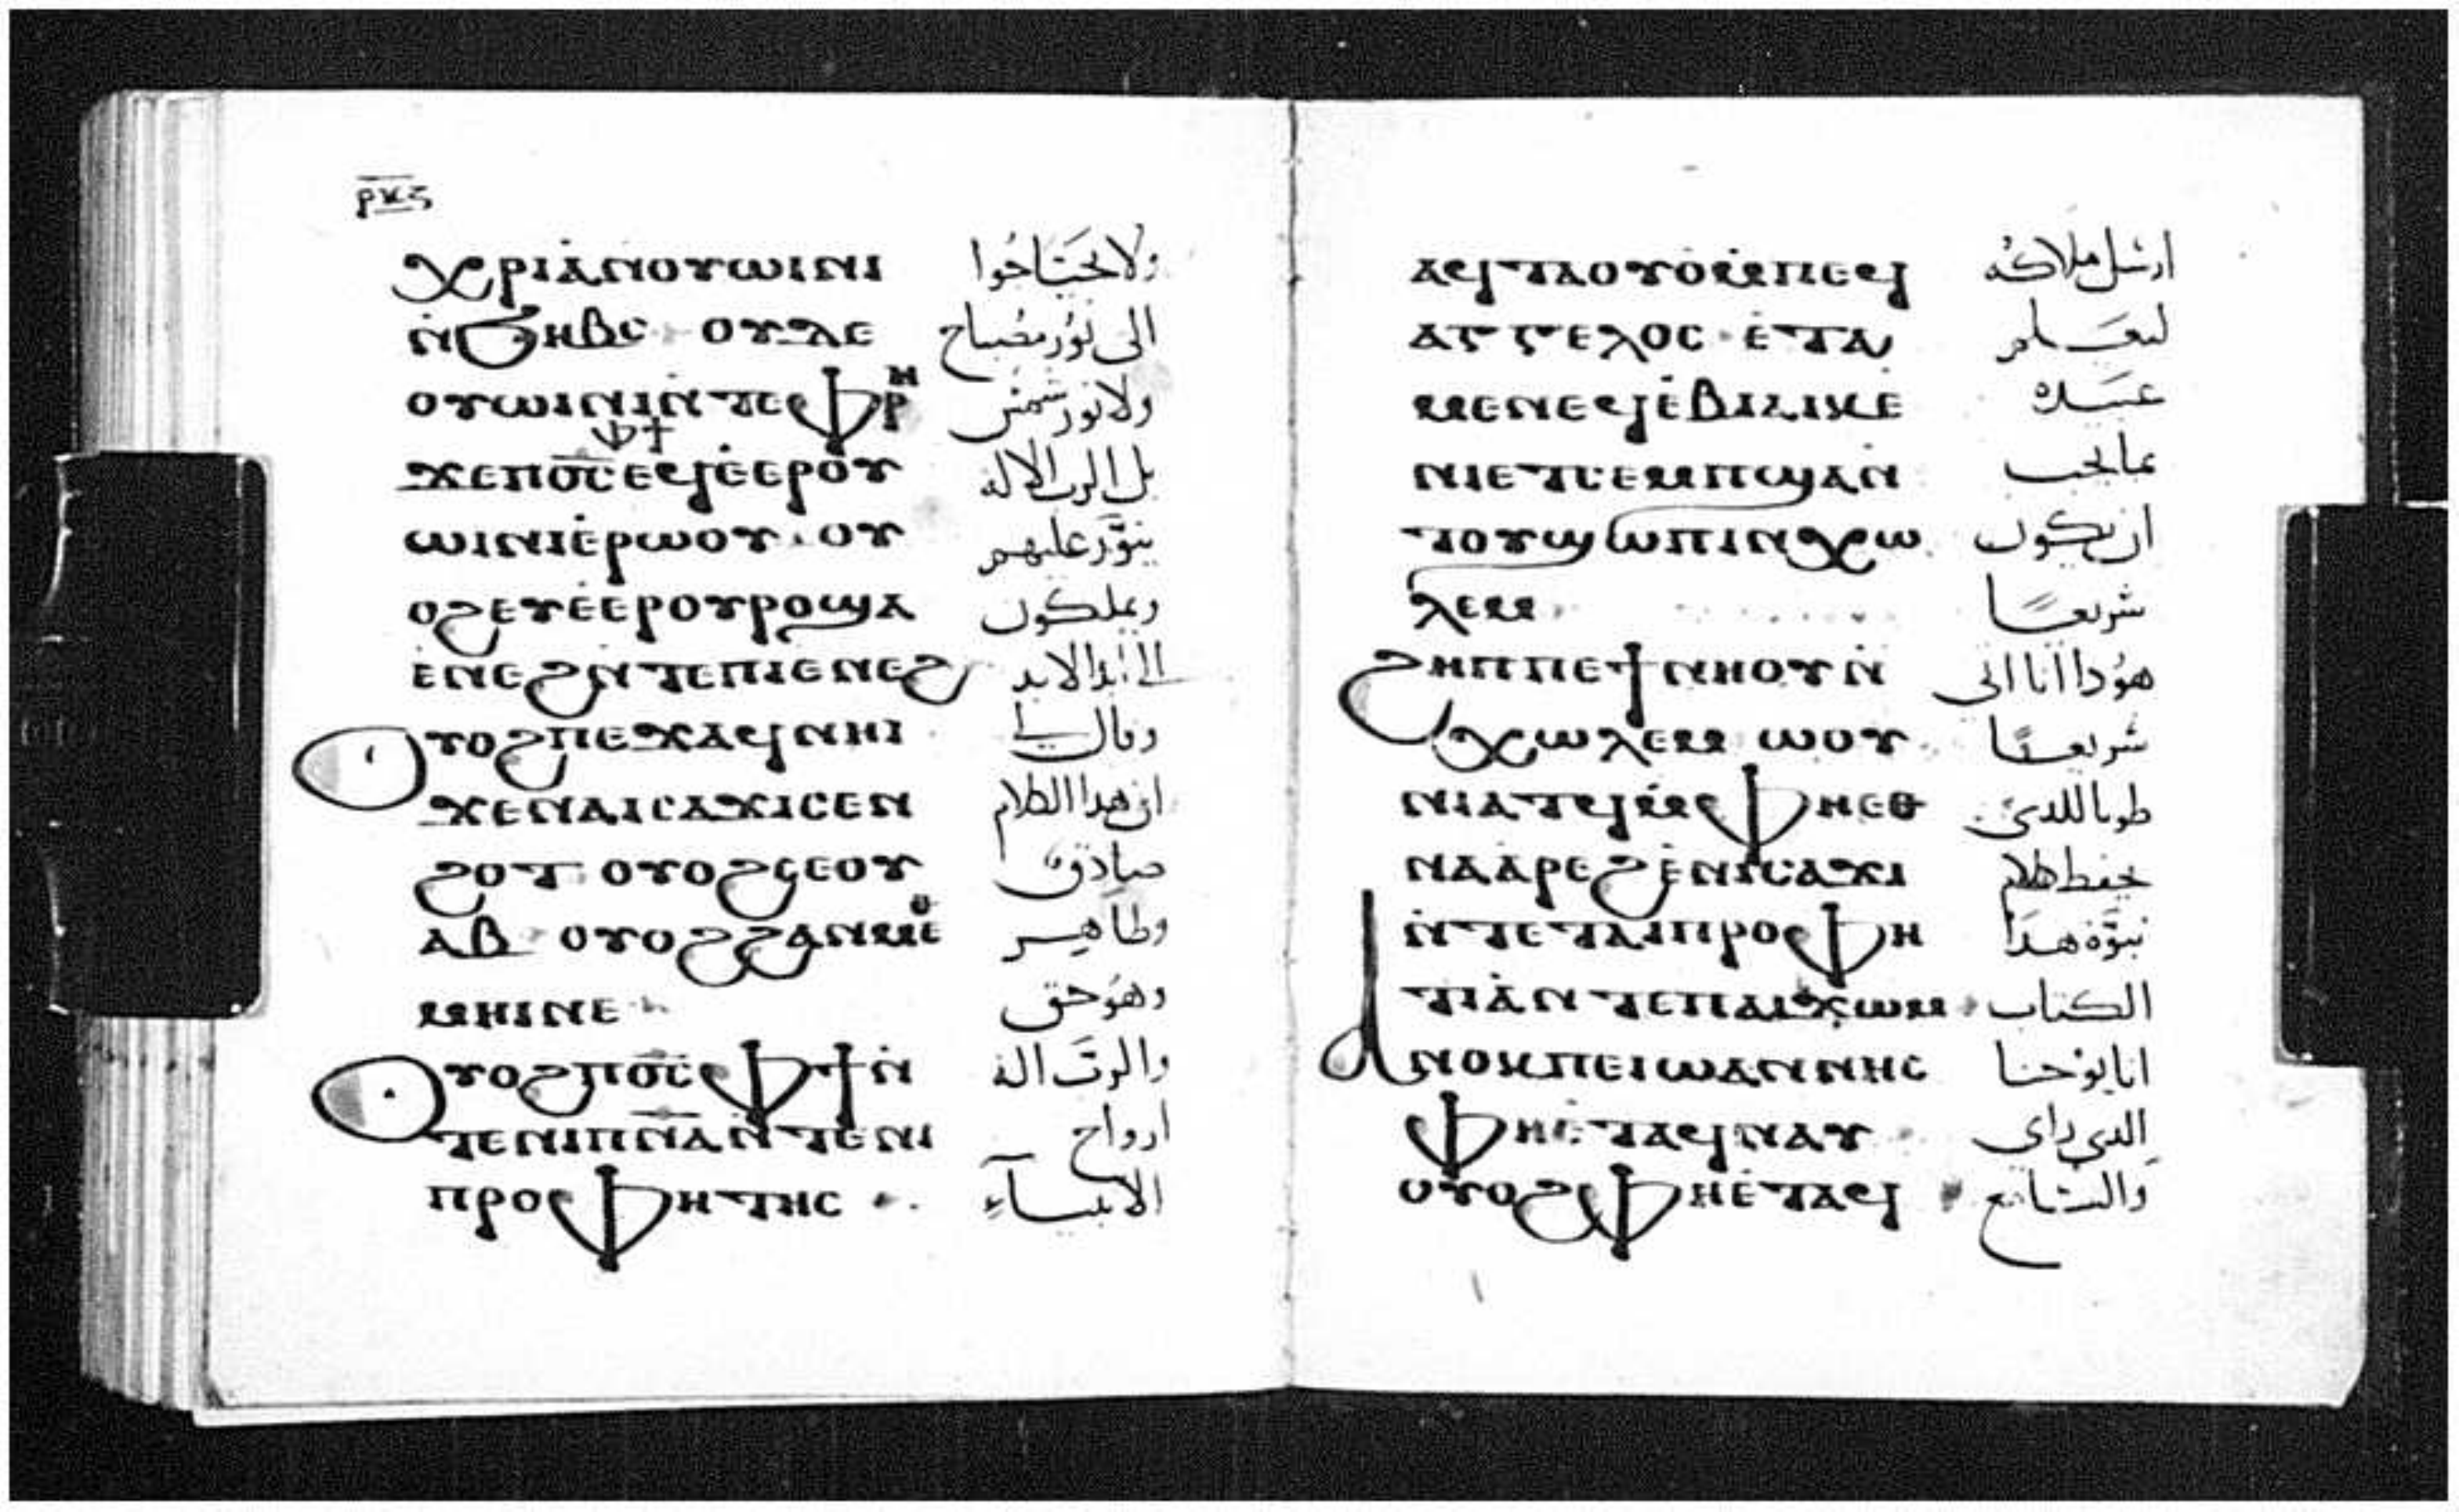 ⲣⲕⲋ
ⲭⲣⲓⲁ̀ⲛⲟⲩⲱⲓⲛⲓ ولا يحتاجوا
ⲛ̀ϧⲏⲃⲥ ⲟⲩⲇⲉ الى نور مصباح
ⲟⲩⲱⲓⲛⲓⲛ̀ⲧⲉⲫⲣⲏ ولا نور شمس
ϫⲉⲡⲟ̅ⲥ̅ⲫϯⲉϥⲉ̀ⲉⲣⲟⲩ بل الرب الاله
ⲱⲓⲛⲓⲉ̀ⲣⲱⲟⲩ ⲟⲩ ينوّر عليهم
ⲟϩⲉⲩⲉ̀ⲉⲣⲟⲩⲣⲟϣⲁ ويملكون
ⲉ̀ⲛⲉϩⲛ̀ⲧⲉⲡⲓⲉⲛⲉϩ الى ابد الابد
ⲟⲩⲟϩⲡⲉϫⲁϥⲛⲏⲓ وقال لي
ϫⲉⲛⲁⲓⲥⲁϫⲓⲥⲉⲛ ان هدا الكلام
ϩⲟⲧ ⲟⲩⲟϩⲥⲉⲟⲩ صادق
ⲁⲃ ⲟⲩⲟϩϩⲁⲛⲙⲉⲑ وطاهر
ⲙⲏⲓⲛⲉ وهو حق
ⲟⲩⲟϩⲡⲟ̅ⲥ̅ⲫϯⲛ̀ والرب اله
ⲧⲉⲛⲓⲡ̅ⲛ̅ⲁ̅ⲛ̀ⲧⲉⲛⲓ ارواح
ⲡⲣⲟⲫⲏⲧⲏⲥ الانبياء
ⲁϥⲧⲁⲟⲩⲟ̀ⲙ̀ⲡⲉϥ ارسل ملاكه
ⲁⲅⲅⲉⲗⲟⲥ ⲉ̀ⲧⲁ ليعلم
ⲙⲉⲛⲉϥⲉ̀ⲃⲓⲁⲓⲕⲉ عبيده
ⲛⲓⲉⲧⲥⲉⲙⲡϣⲁⲛ بما يجب
ⲧⲟⲩϣⲱⲡⲓⲛⲭⲱ ان يكون
ⲗⲉⲙ شريعا
ϩⲏⲡⲡⲉϯⲛⲏⲟⲩⲛ̀ هودا انا اتى
ⲭⲱⲗⲉⲙ ⲱⲟⲩ شريعا
ⲛⲓⲁⲧϥⲙ̀ⲫⲏⲉⲑ طوبا للدى
ⲛⲁⲁ̀ⲣⲉϩⲉ̀ⲛⲓⲥⲁϫⲓ يحفظ كلام
ⲛ̀ⲧⲉⲧⲁⲓⲡⲣⲟⲫⲏ نبوّة هدا
ⲧⲓⲁ̀ⲛⲧⲉⲡⲁⲓϫⲱⲙ الكتاب
ⲁⲛⲟⲕⲡⲉⲓⲱⲁⲛⲛⲏⲥ انا يوحنا
ⲫⲏⲉ̀ⲧⲁϥⲛⲁⲩ الدى راى
ⲟⲩⲟϩⲫⲏⲉ̀ⲧⲁϥ والسامع